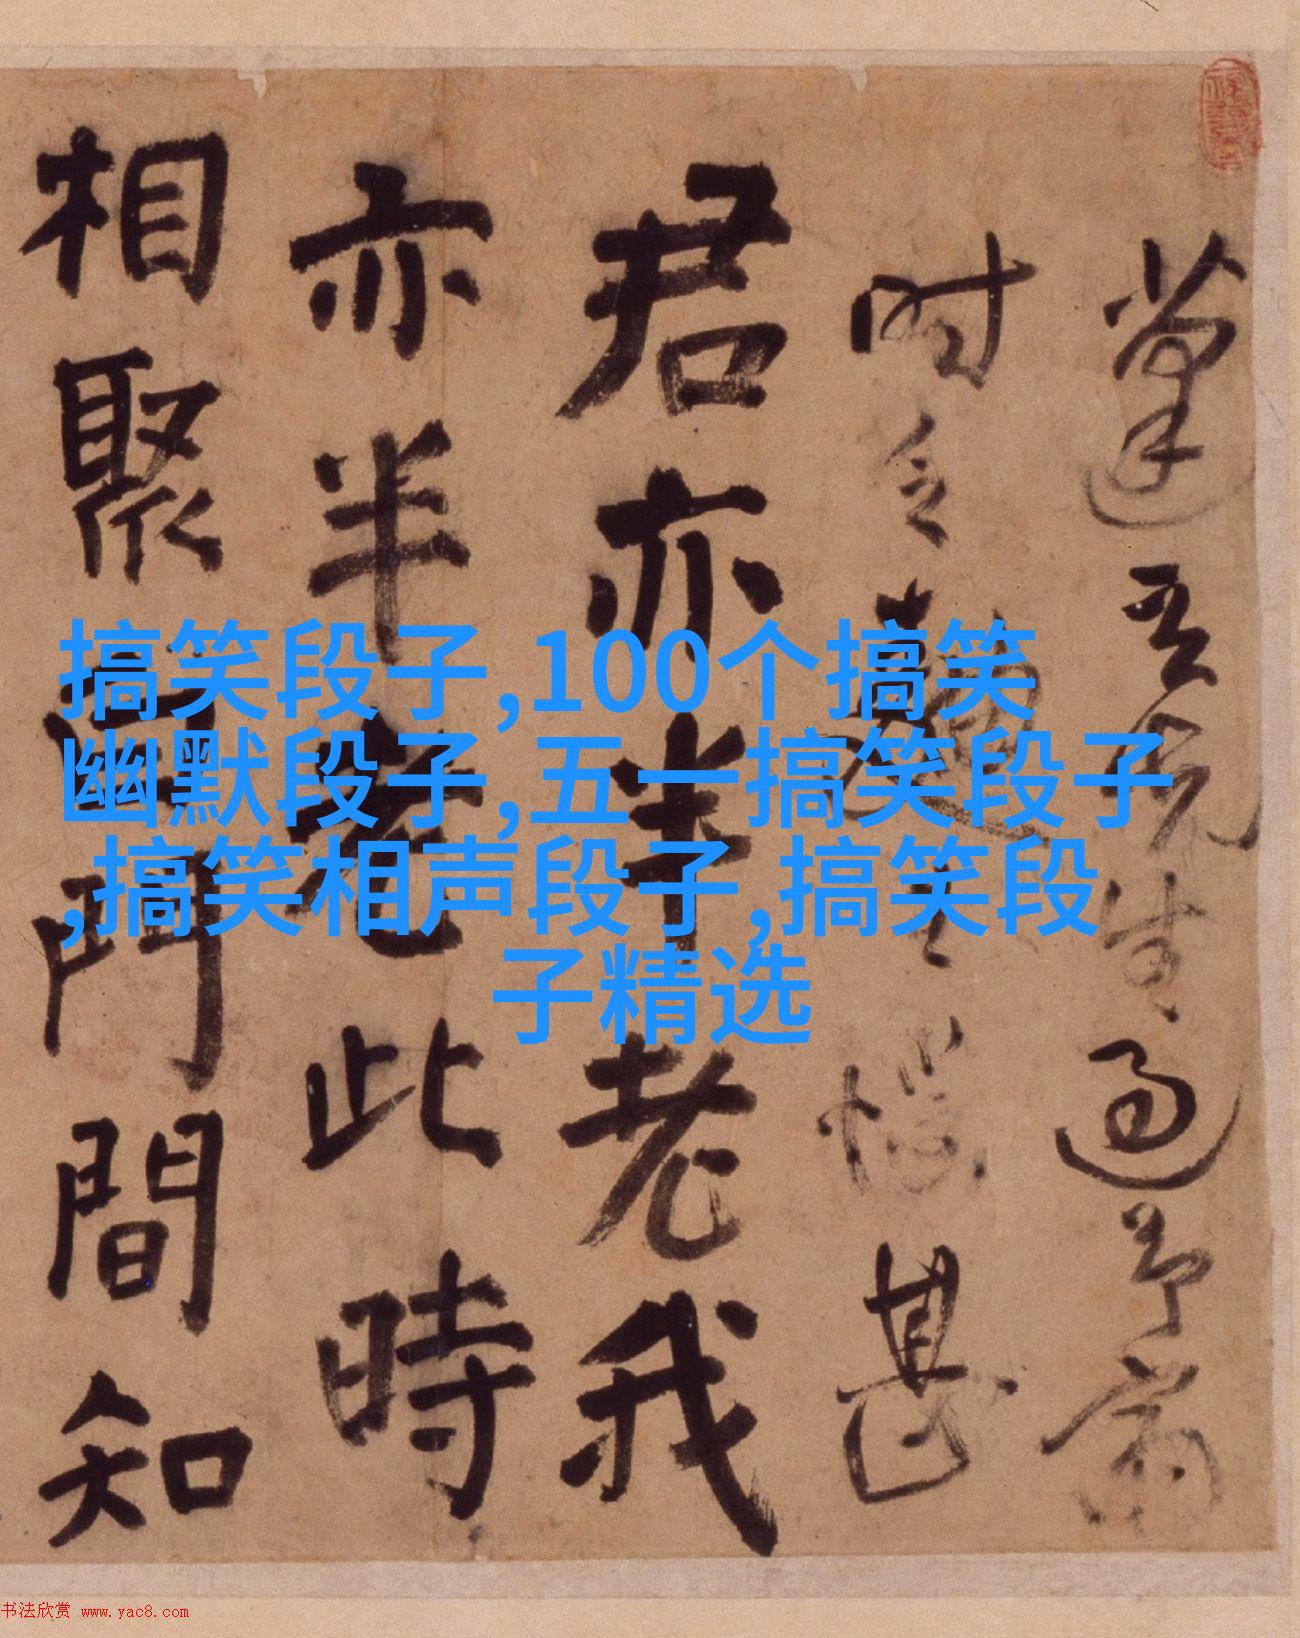 搞笑段子,100个搞笑
幽默段子,五一搞笑段子
,搞笑相声段子,搞笑段
子精选
生過予
時 甚
君亦半老我
亦半老此時
相聚 門間知
书法欣赏 www.yac8.com